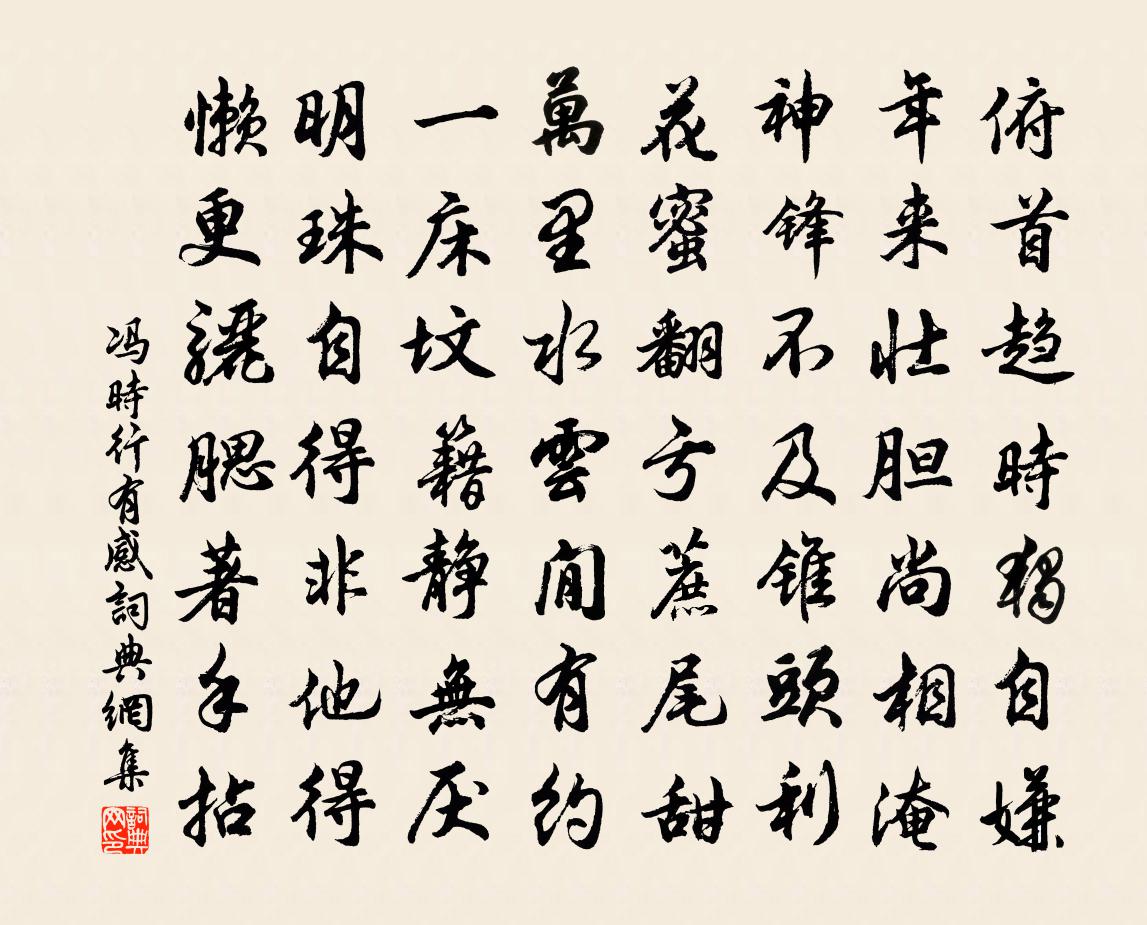 俯首趋時獨自嫌
年来壮胆尚相淹
神锋不及锥頭利
花蜜翻亏蔗尾甜
萬里水雲閒有约
一床坟籍静無厌
明珠自得非他得
懒更驪腮著手拈
冯時行有感詞典網集
詞典網印